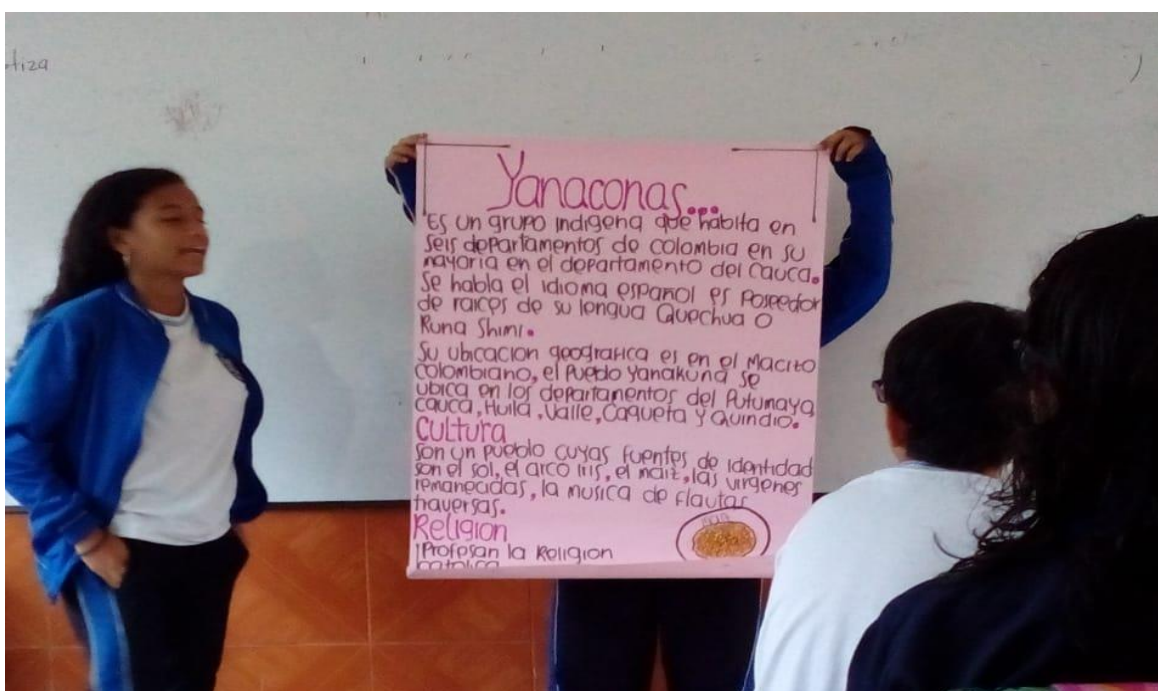 tiza
Yanaconas...
Es un grupo indigena que habita en
seis departamentos de colombia en su
mayoria en el departamento del Cauca.
Se habla el idioma español es poseedor
de raices de su lengua Quechua o
Runa Shimi.
Su ubicacion geografica es en el Macito
colombiano, el Pueblo Yanakuna se
ubica en los departamentos del Putumayo,
cauca, Huila, Valle, Caqueta y Quindio.
Cultura
Son un pueblo cuyas fuentes de identidad
son el sol, el arco iris, el maiz, las virgenes
remanecidas, la musica de flautas
traversas.
Religion
Profesan la Religion
catolica